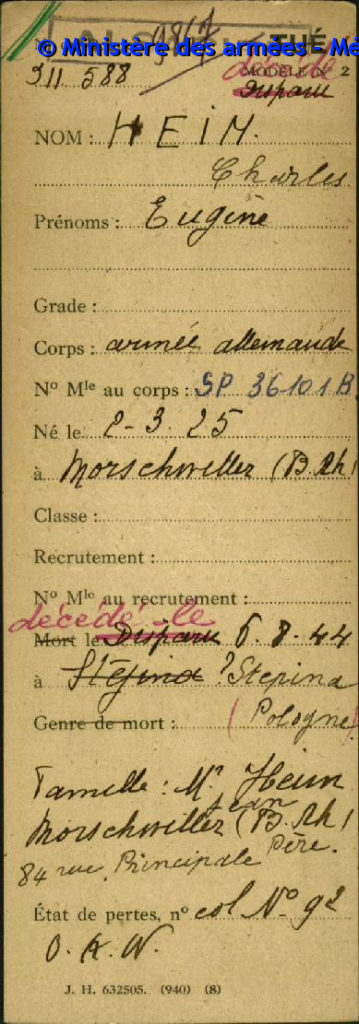 © Ministère des armées - Mé
TUÉ
décédé
311 588
MODÈLE N° 2
Disparu
NOM : HEIM.
Charles
Prénoms : Eugène
Grade :
Corps : armée allemande
N° Mle au corps : SP 36101 B
Né le 2-3.25
à Morschwiller (B. Rh)
Classe :
Recrutement :
N° Mle au recrutement :
décédé le
Mort le Disparu 6.8.44
à Stéjina ? Stepina
Genre de mort : (Pologne)
Famille : Mr Heim
Jean
Morschwiller (B. Rh)
84 rue Principale Père.
État de pertes, n° col N° 92
O.K.W.
J. H. 632505. (940) (8)